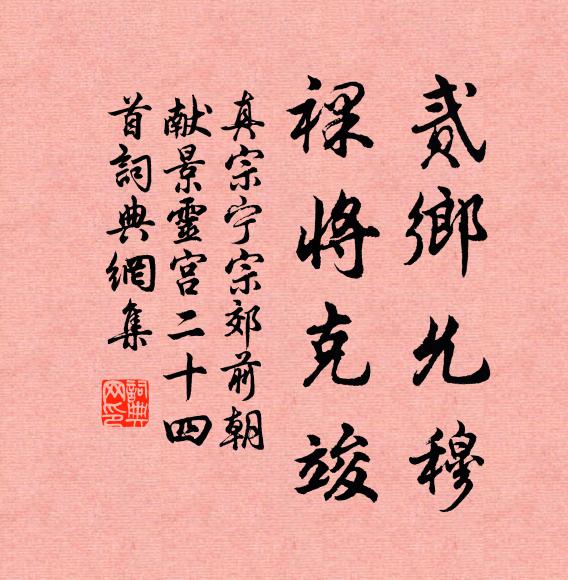 貳鄉允穆
祼將克竣
真宗宁宗郊前朝
献景靈宫二十四
首詞典網集
詞典
网印